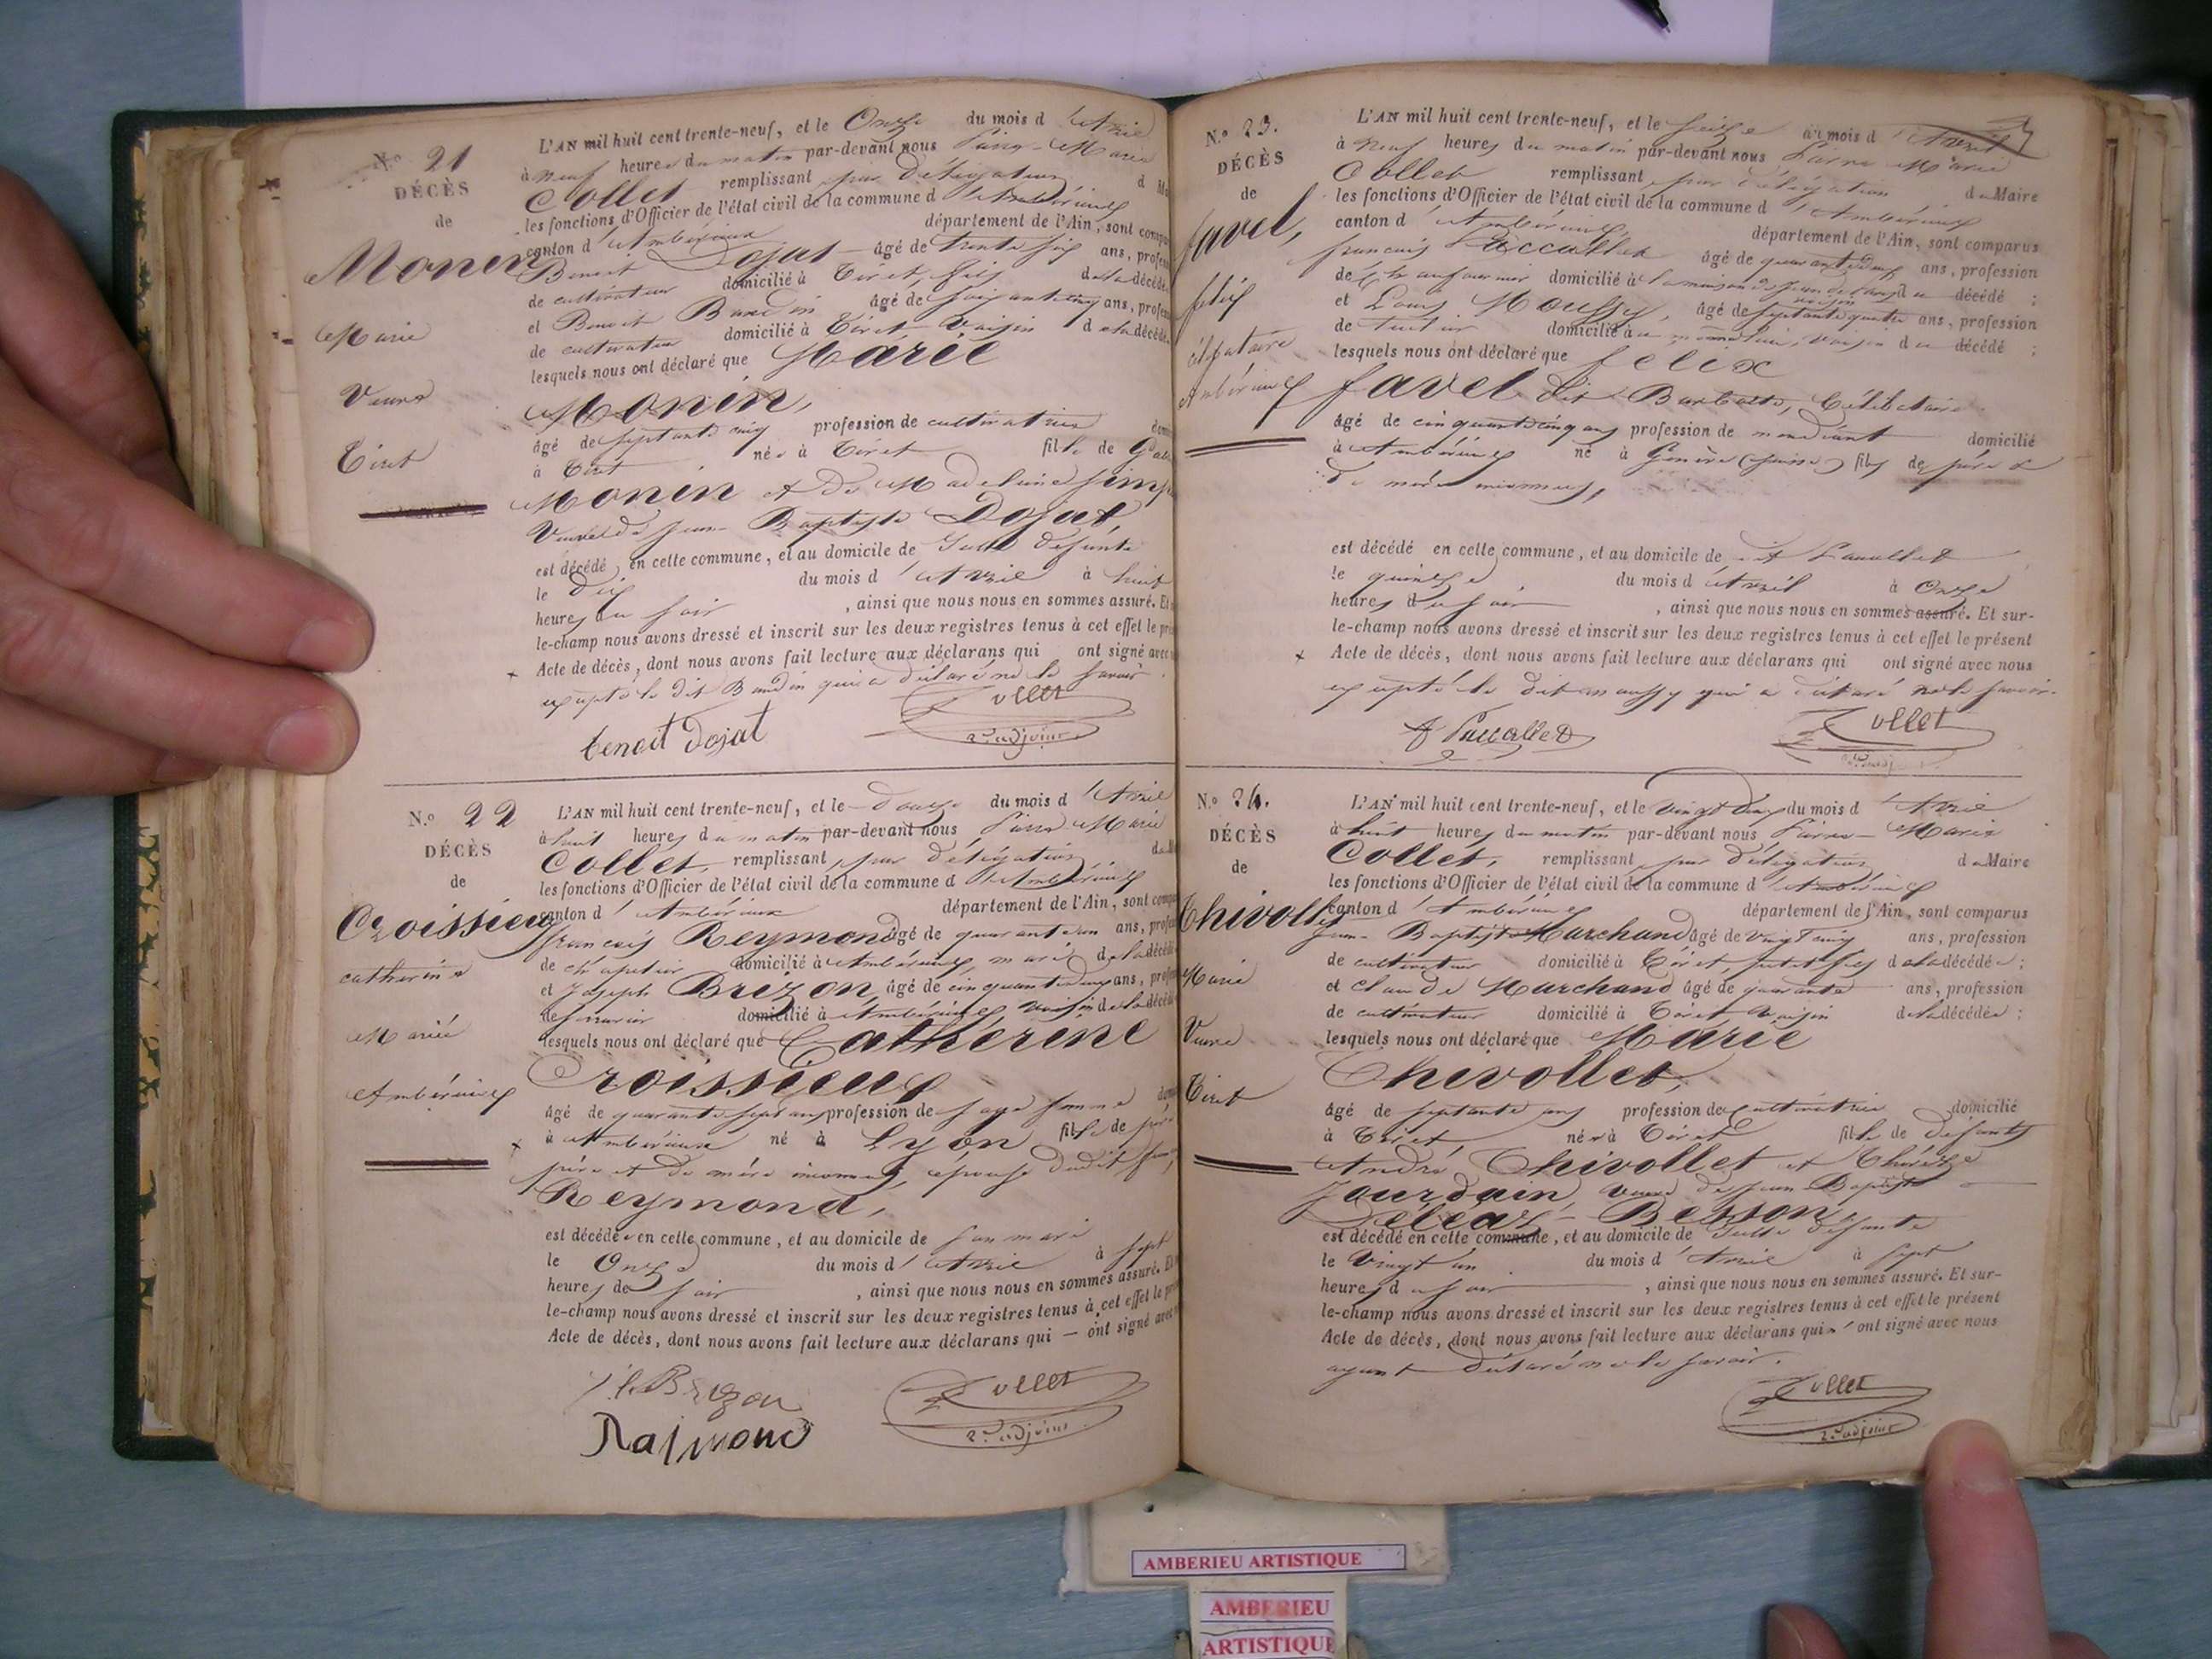 N.° 21
DÉCÈS
de
Monin
Marie
Veuve
Tiret
L'AN mil huit cent trente-neuf, et le Onze du mois d'Avril
à neuf heures du matin par-devant nous Pierre-Marie
Collet remplissant par délégation d
les fonctions d'Officier de l'état civil de la commune d'Ambérieux
canton d'Ambérieux département de l'Ain, sont
Benoit Dojat âgé de trente six ans,
de cultivateur domicilié à Tiret, fils de la
et Benoit Baudin âgé de soixante cinq ans,
de cultivateur domicilié à Tiret voisin de la
lesquels nous ont déclaré que Marie
Monin,
âgé de septante cinq profession de cultivatrice
à Tiret née à Tiret fille de
Monin et de Madeleine
Veuve de Jean-Baptiste Dojat,
est décédé en cette commune, et au domicile de la défunte
le dix du mois d'Avril à huit
heures du soir, ainsi que nous nous en sommes assuré. Et
le-champ nous avons dressé et inscrit sur les deux registres tenus à cet effet le
Acte de décès, dont nous avons fait lecture aux déclarans qui ont signé avec
excepté le dit Baudin qui a déclaré ne le savoir.
benoit Dojat Collet
2.e adjoint
N.° 22
DÉCÈS
de
Croissieux
catherine
Mariée
Ambérieux
L'AN mil huit cent trente-neuf, et le douze du mois d'Avril
à huit heures du matin par-devant nous Pierre Marie
Collet, remplissant par délégation
les fonctions d'Officier de l'état civil de la commune d'Ambérieux
canton d'Ambérieux département de l'Ain, sont
françois Reymond âgé de quarante un ans,
de chapelier domicilié à Ambérieux, mari de la
et Joseph Brezon, âgé de cinquante deux ans,
de domicilié à Ambérieux voisin de la
lesquels nous ont déclaré que Catherine
Croissieux
âgé de quarante sept ans profession de sage femme
à Ambérieux né à Lyon fille de
père et de mère inconnus, épouse dudit
Reymond,
est décédée en cette commune, et au domicile de son mari
le Onze du mois d'Avril à sept
heures de soir, ainsi que nous nous en sommes assuré.
le-champ nous avons dressé et inscrit sur les deux registres tenus à cet effet le
Acte de décès, dont nous avons fait lecture aux déclarans qui — ont signé
Brezon Collet
Raimond 2.e adjoint
N.° 23.
DÉCÈS
de
favel,
félix
célibataire
Ambérieux
L'AN mil huit cent trente-neuf, et le seize du mois d'Avril
à neuf heures du matin par-devant nous Pierre Marie
Collet remplissant par délégation du Maire
les fonctions d'Officier de l'état civil de la commune d'Ambérieux
canton d'Ambérieux, département de l'Ain, sont comparus
françois âgé de quarante deux ans, profession
de chauffournier domicilié à du décédé;
et Louis Moussy, âgé de septante quatre ans, profession
de domicilié voisin du décédé;
lesquels nous ont déclaré que felix
favel dit Célibataire
âgé de cinquante cinq ans profession de mendiant domicilié
à Ambérieux né à Genève (suisse) fils de père &
de mère inconnus,
est décédé en cette commune, et au domicile de
le quinze du mois d'Avril à Onze
heures du soir, ainsi que nous nous en sommes assuré. Et sur-
le-champ nous avons dressé et inscrit sur les deux registres tenus à cet effet le présent
Acte de décès, dont nous avons fait lecture aux déclarans qui ont signé avec nous
excepté le dit moussy qui a déclaré ne le savoir.
Collet
N.° 24.
DÉCÈS
de
Chivollet
Marie
Veuve
Tiret
L'AN mil huit cent trente-neuf, et le vingt deux du mois d'Avril
à huit heures du matin par-devant nous Pierre-Marie
Collet, remplissant par délégation du Maire
les fonctions d'Officier de l'état civil de la commune d'Ambérieux
canton d'Ambérieux département de l'Ain, sont comparus
Jean-Baptiste Marchand âgé de vingt cinq ans, profession
de cultivateur domicilié à Tiret, petit fils de la décédée;
et claude Marchand âgé de quarante ans, profession
de cultivateur domicilié à Tiret voisin de la décédée;
lesquels nous ont déclaré que Marie
Chivollet,
âgé de septante ans profession de Cultivatrice domicilié
à Tiret née à Tiret fille de défunts
André Chivollet et Thérèze
Jourdain, veuve de Jean-Baptiste
Besson,
est décédé en cette commune, et au domicile de la défunte
le vingt un du mois d'Avril à sept
heures du soir, ainsi que nous nous en sommes assuré. Et sur-
le-champ nous avons dressé et inscrit sur les deux registres tenus à cet effet le présent
Acte de décès, dont nous avons fait lecture aux déclarans qui n'ont signé avec nous
ayant déclaré ne le savoir.
Collet
2.e adjoint
AMBERIEU ARTISTIQUE
AMBERIEU
ARTISTIQUE